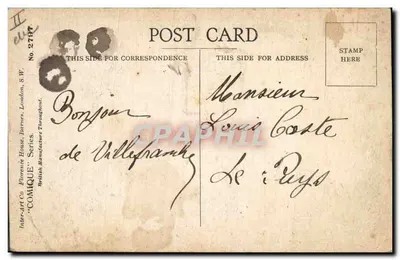 II
POST CARD
THIS SIDE FOR CORRESPONDENCE
THIS SIDE FOR ADDRESS
STAMP
HERE
Bonjour
de Villefranche
Monsieur
Louis Coste
Le Puys
CPAPHIL
Inter-Art Co Florence House, Barnes, London, S.W.
"COMIQUE" Series.
No. 2797
British Manufacture Throughout.